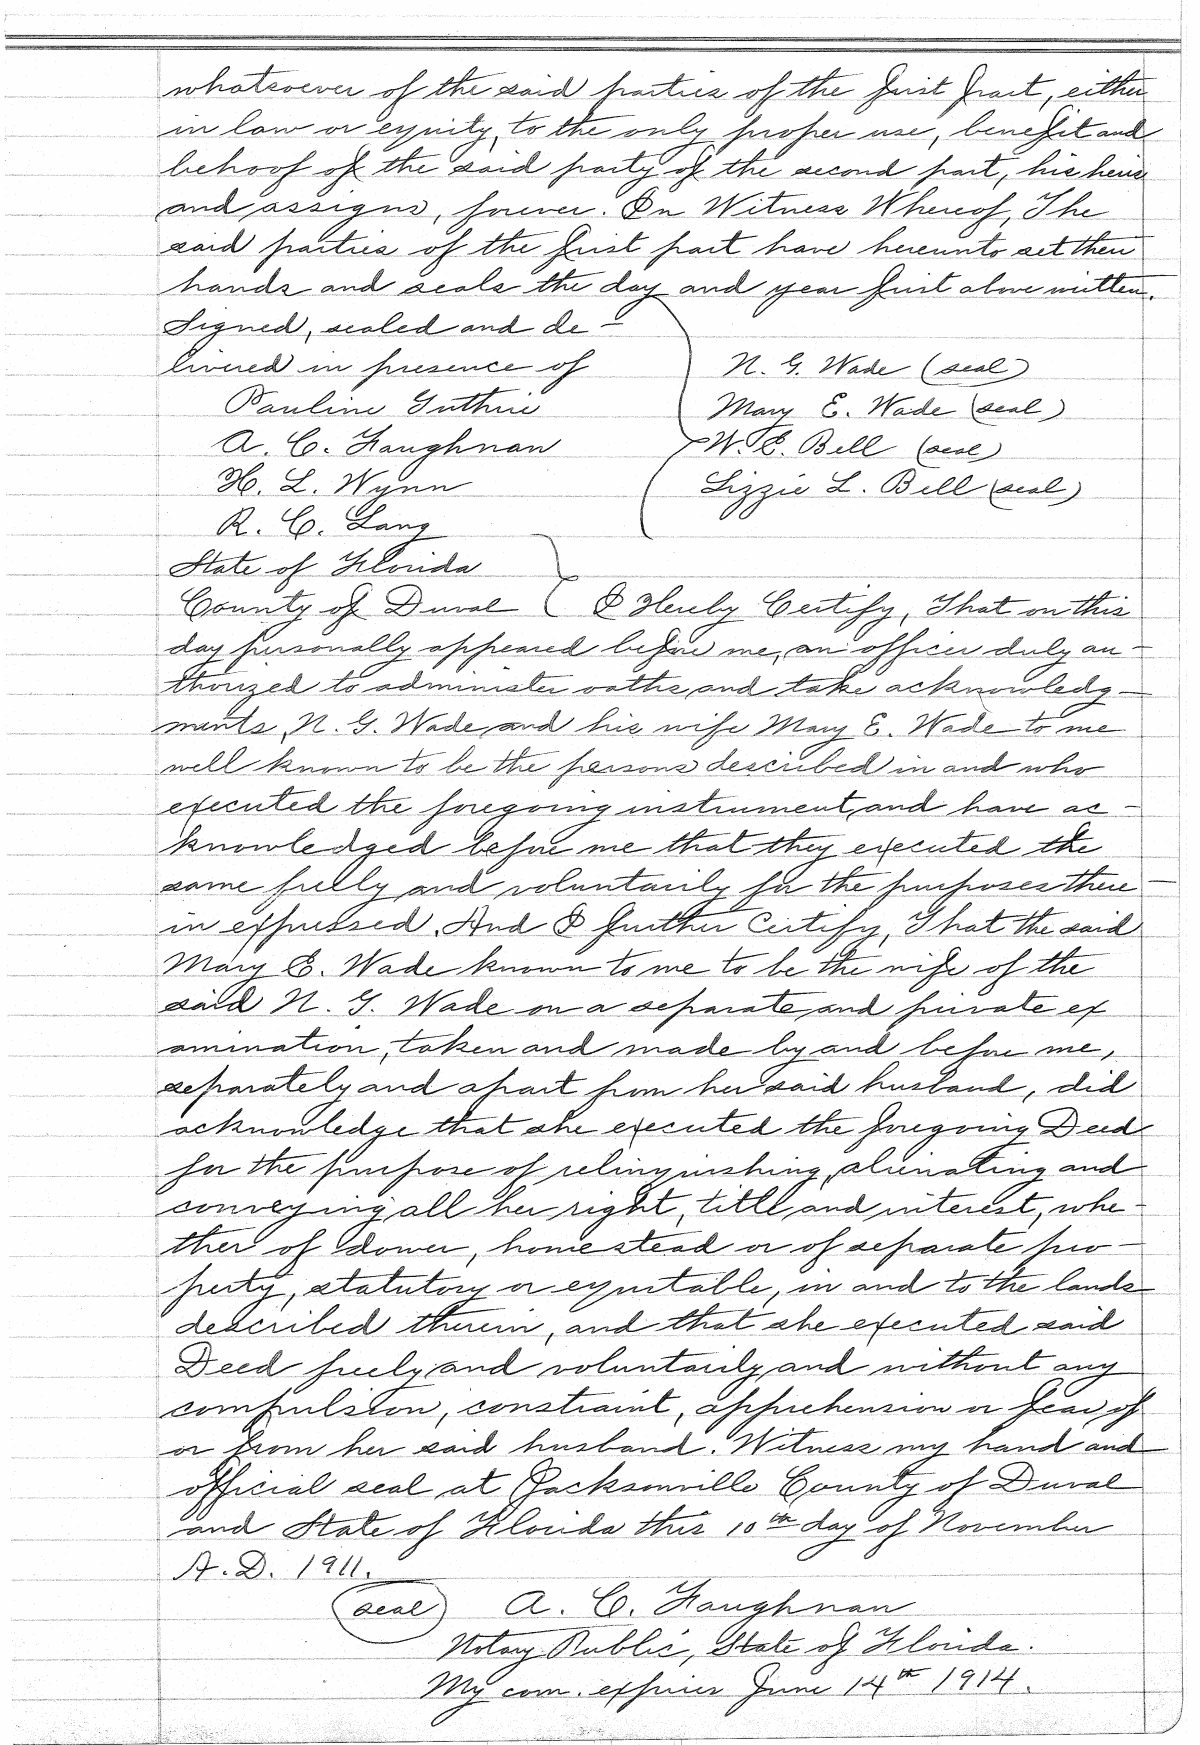 whatsoever of the said parties of the first part, either
in law or equity, to the only proper use, benefit and
behoof of the said party of the second part, his heirs
and assigns, forever. In Witness Whereof, The
said parties of the first part have hereunto set their
hands and seals the day and year first above written.
Signed, sealed and de-
livered in presence of N. G. Wade (seal)
Pauline Guthrie Mary E. Wade (seal)
A. C. Faughnan W. E. Bell (seal)
H. L. Wynn Lizzie L. Bell (seal)
R. C. Lang
State of Florida
County of Duval I Hereby Certify, That on this
day personally appeared before me, an officer duly au-
thorized to administer oaths and take acknowledg-
ments, N. G. Wade and his wife Mary E. Wade to me
well known to be the persons described in and who
executed the foregoing instrument, and have ac-
knowledged before me that they executed the
same freely and voluntarily for the purposes there-
in expressed. And I further Certify, That the said
Mary E. Wade known to me to be the wife of the
said N. G. Wade on a separate and private ex
amination, taken and made by and before me,
separately and apart from her said husband, did
acknowledge that she executed the foregoing Deed
for the purpose of relinquishing, alienating and
conveying all her right, title and interest, whe-
ther of dower, homestead or of separate pro-
perty, statutory or equitable, in and to the lands
described therein, and that she executed said
Deed freely and voluntarily and without any
compulsion, constraint, apprehension or fear of
or from her said husband. Witness my hand and
official seal at Jacksonville County of Duval
and State of Florida this 10th day of November
A. D. 1911.
(seal) A. C. Faughnan
Notary Public, State of Florida.
My com. expires June 14th 1914.